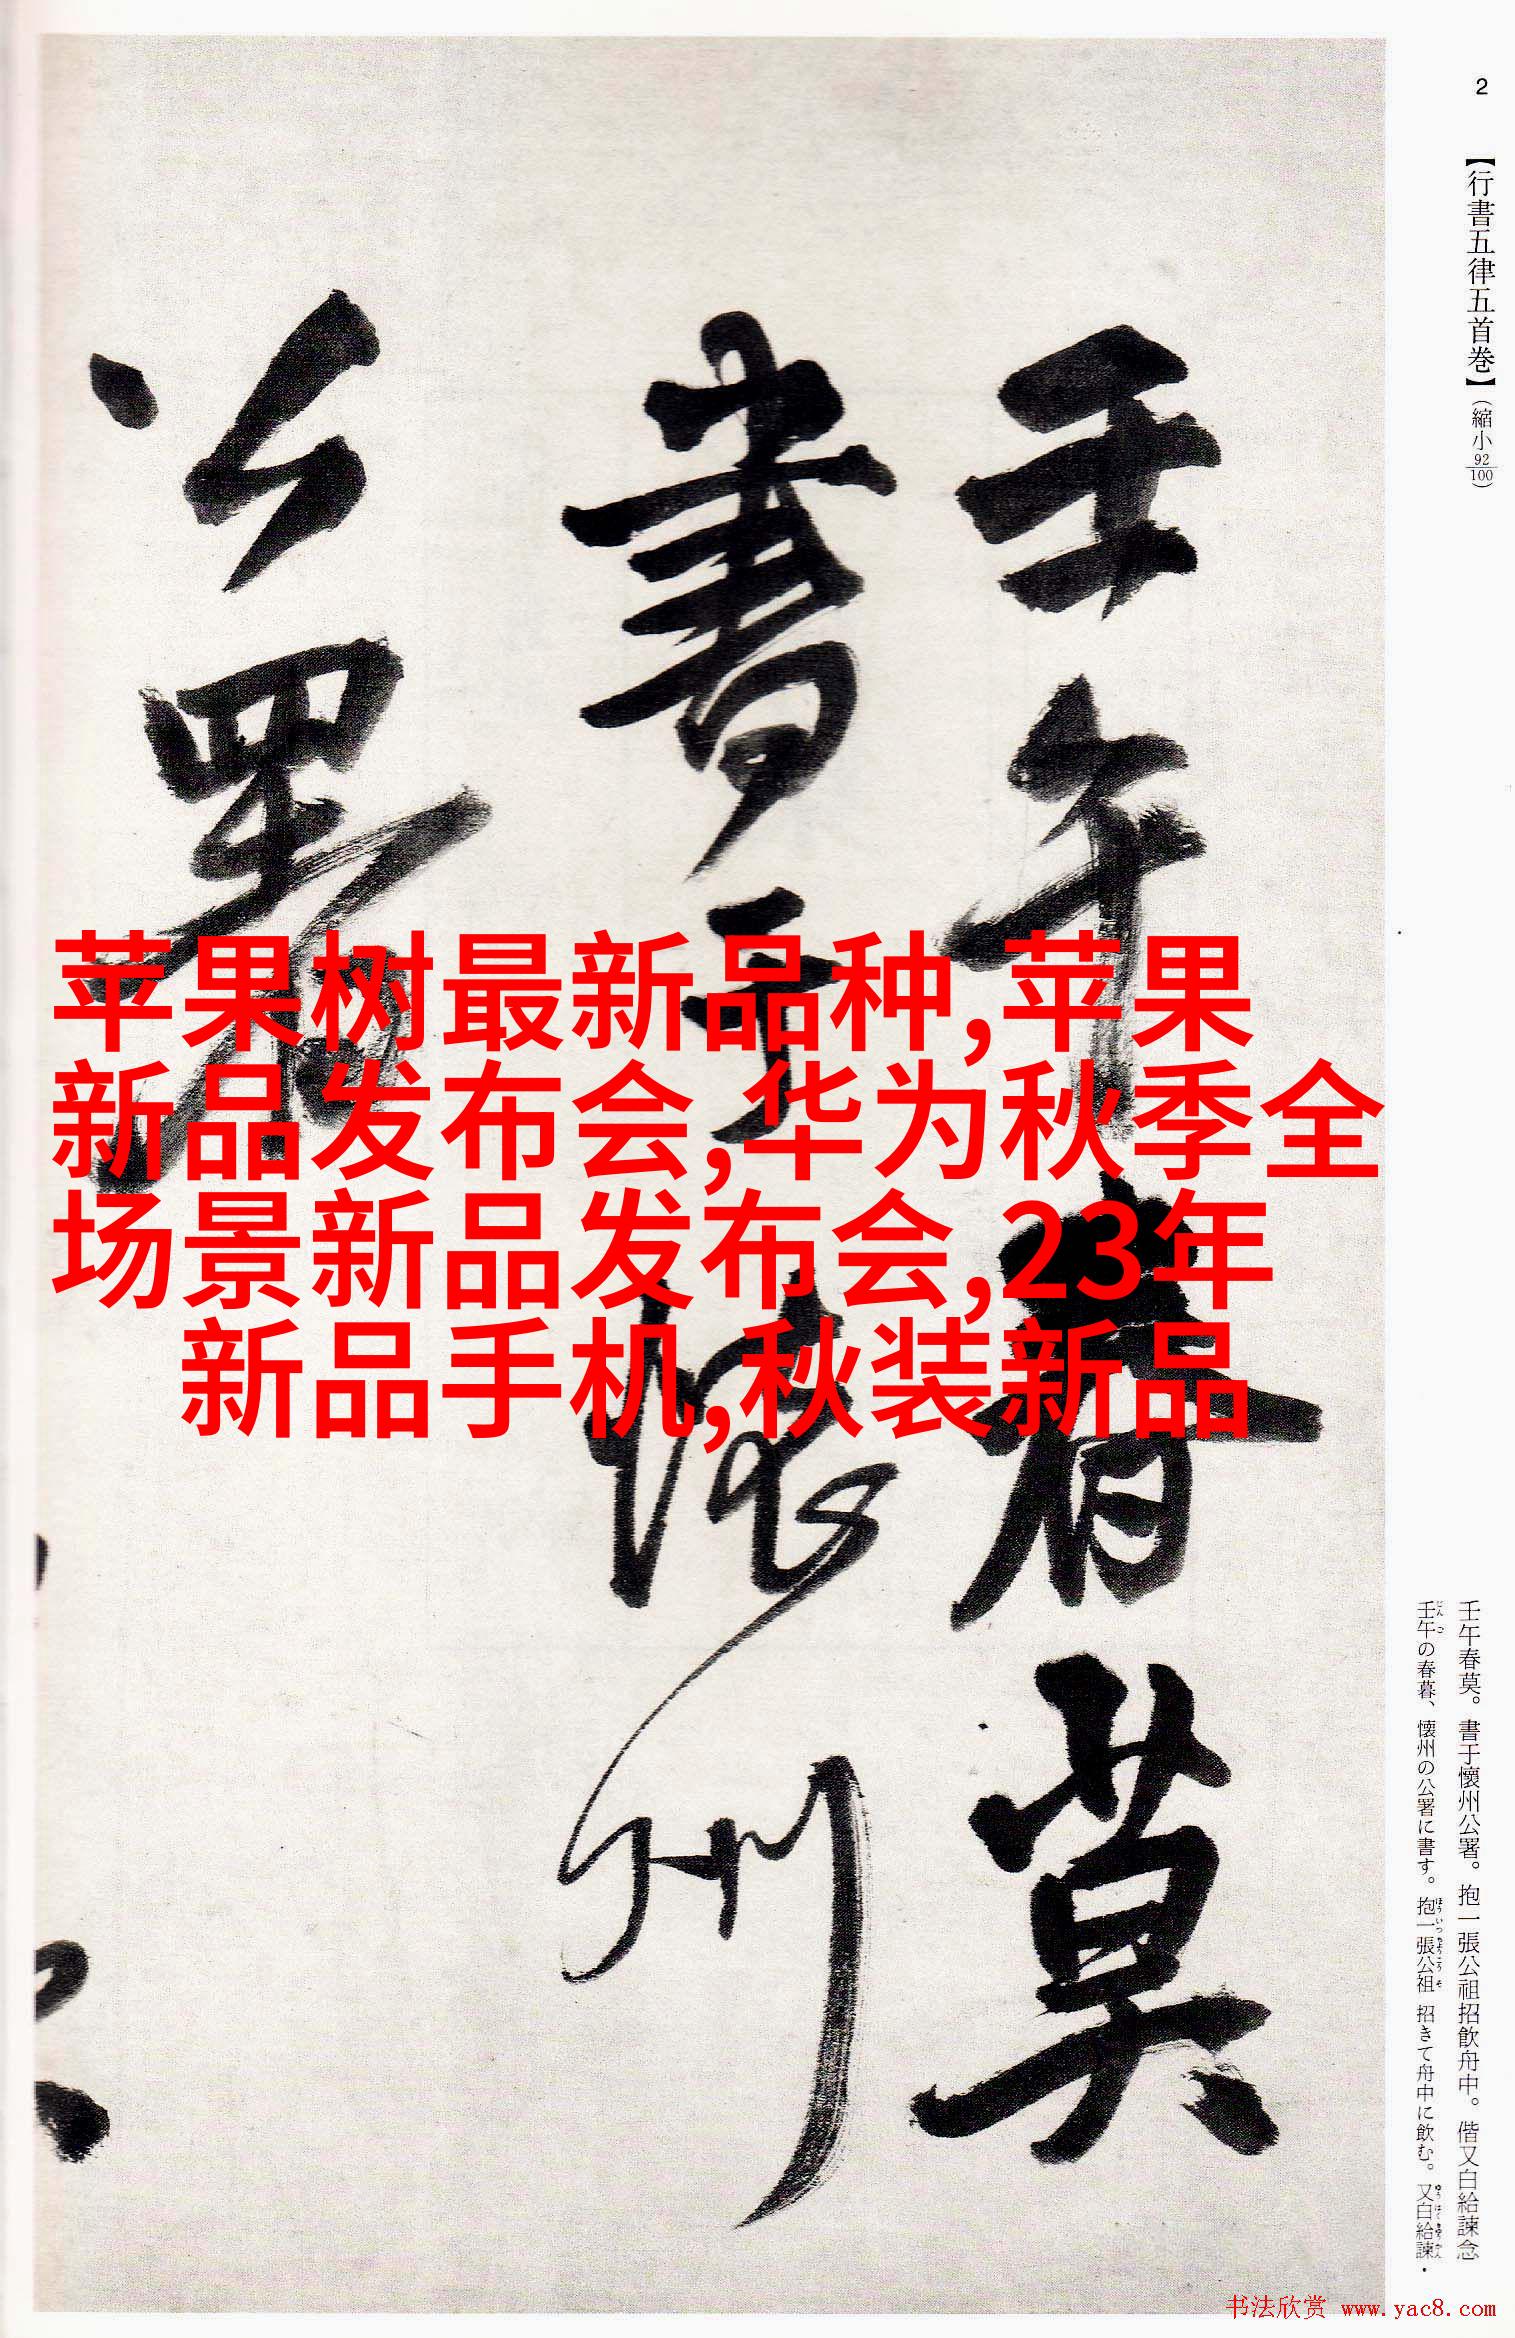 2
【行書五律五首巻】（縮小92/100）
壬午春莫
書于懷州
公署
苹果树最新品种,苹果
新品发布会,华为秋季全
场景新品发布会,23年
新品手机,秋装新品
壬午春莫。書于懷州公署。抱一張公祖招飲舟中。偕又白給諫念
壬午の春暮、懷州の公署に書す。抱一張公祖 招きて舟中に飲む。又白給諫・
书法欣赏 www.yac8.com